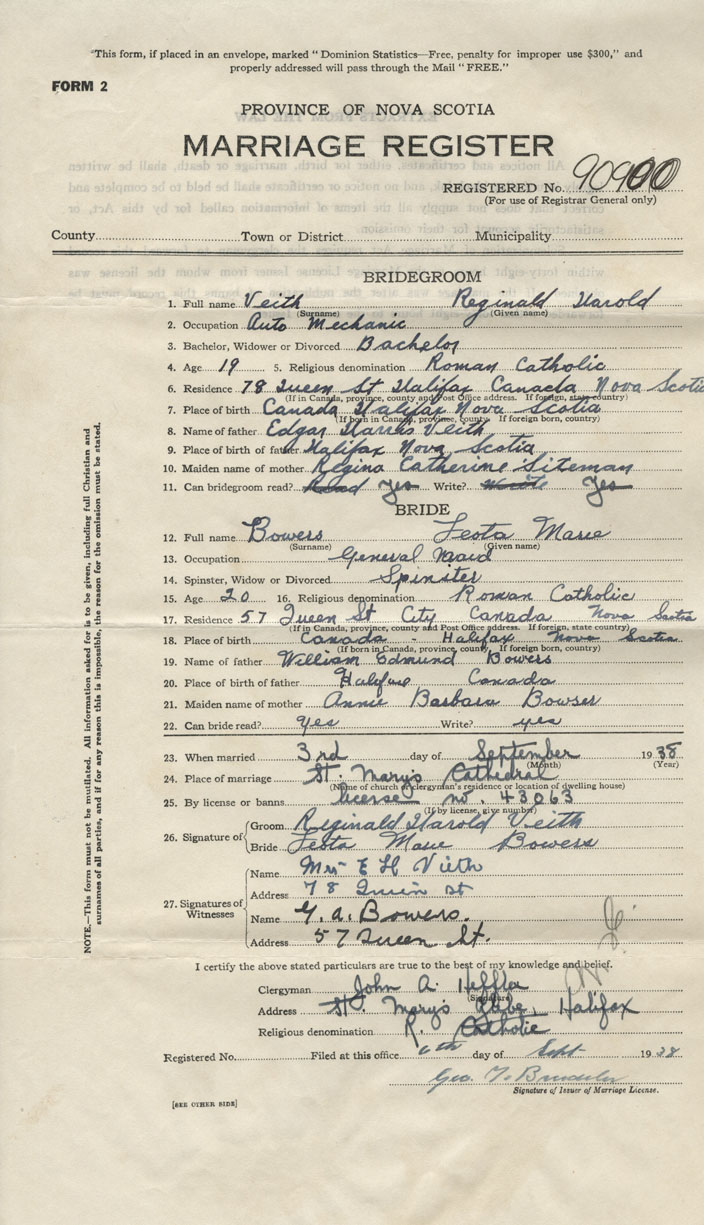 "This form, if placed in an envelope, marked "Dominion Statistics—Free, penalty for improper use $300," and
properly addressed will pass through the Mail "FREE."
FORM 2
PROVINCE OF NOVA SCOTIA
MARRIAGE REGISTER
REGISTERED No.
(For use of Registrar General only)
County Town or District Municipality
BRIDEGROOM
1. Full name Veith Reginald Harold
(Surname) (Given name)
2. Occupation Auto Mechanic
3. Bachelor, Widower or Divorced Bachelor
4. Age 19 5. Religious denomination Roman Catholic
6. Residence 78 Queen St Halifax Canada Nova Scotia
(If in Canada, province, county and Post Office address. If foreign, state country)
7. Place of birth Canada Halifax Nova Scotia
(If born in Canada, province, county. If foreign born, country)
8. Name of father Edgar Harris Veith
9. Place of birth of father Halifax Nova Scotia
10. Maiden name of mother Regina Catherine Siteman
11. Can bridegroom read? Read Yes Write? Write Yes
BRIDE
12. Full name Bowers Festa Marie
(Surname) (Given name)
13. Occupation General Maid
14. Spinster, Widow or Divorced Spinster
15. Age 20 16. Religious denomination Roman Catholic
17. Residence 57 Queen St City Canada Nova Scotia
(If in Canada, province, county and Post Office address. If foreign, state country)
18. Place of birth Canada - Halifax Nova Scotia
(If born in Canada, province, county. If foreign born, country)
19. Name of father William Edmund Bowers
20. Place of birth of father Halifax Canada
21. Maiden name of mother Annie Barbara Bowser
22. Can bride read? yes Write? yes
23. When married 3rd day of September 1938
(Month) (Year)
24. Place of marriage St. Marys Cathedral
(Name of church or clergyman's residence or location of dwelling house)
25. By license or banns license no. 43063
(If by license, give number)
26. Signature of
Groom Reginald Harold Veith
Bride Festa Marie Bowers
27. Signatures of Witnesses
Name Mrs E H Vieth
Address 78 Queen St
Name G. A. Bowers.
Address 57 Queen St.
I certify the above stated particulars are true to the best of my knowledge and belief.
Clergyman John A. Heffler
(Signature)
Address St. Mary's Glebe, Halifax
Religious denomination R. Catholic
Registered No. Filed at this office 6th day of Sept 1938
Geo.
Signature of Issuer of Marriage License.
[SEE OTHER SIDE]
NOTE.—This form must not be mutilated. All information asked for is to be given, including full Christian and
surnames of all parties, and if for any reason this is impossible, the reason for the omission must be stated.